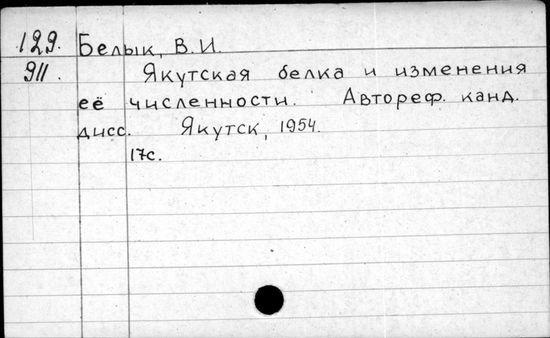 129. Белык, В.И.
911. Якутская белка и изменения
её численности. Автореф. канд.
дисс. Якутск, 1954.
17с.